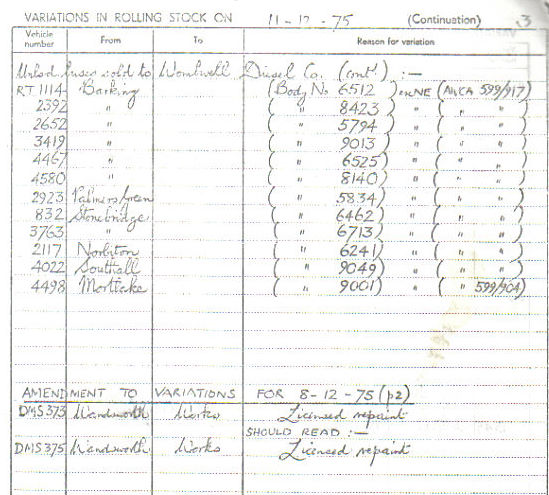 VARIATIONS IN ROLLING STOCK ON 11-12-75 (Continuation) 3
Vehicle number From To Reason for variation
Unlscd buses sold to Wombwell Diesel Co. (cont^d.) :—
RT 1114 Barking (Body No 6512) ex NE (AWCA 599/917)
2392 " ( " 8423) " ( " " )
2652 " ( " 5794) " ( " " )
3419 " ( " 9013) " ( " " )
4467 " ( " 6525) " ( " " )
4580 " ( " 8140) " ( " " )
2923 Palmers Green ( " 5834) " ( " " )
832 Stonebridge ( " 6462) " ( " " )
3763 " ( " 6713) " ( " " )
2117 Norbiton ( " 6241) " ( " " )
4022 Southall ( " 9049) " ( " " )
4498 Mortlake ( " 9001) " ( " 599/904)
AMENDMENT TO VARIATIONS FOR 8-12-75 (p2)
DMS 373 Wandsworth Works Licensed repaint
SHOULD READ :—
DMS 375 Wandsworth Works Licensed repaint